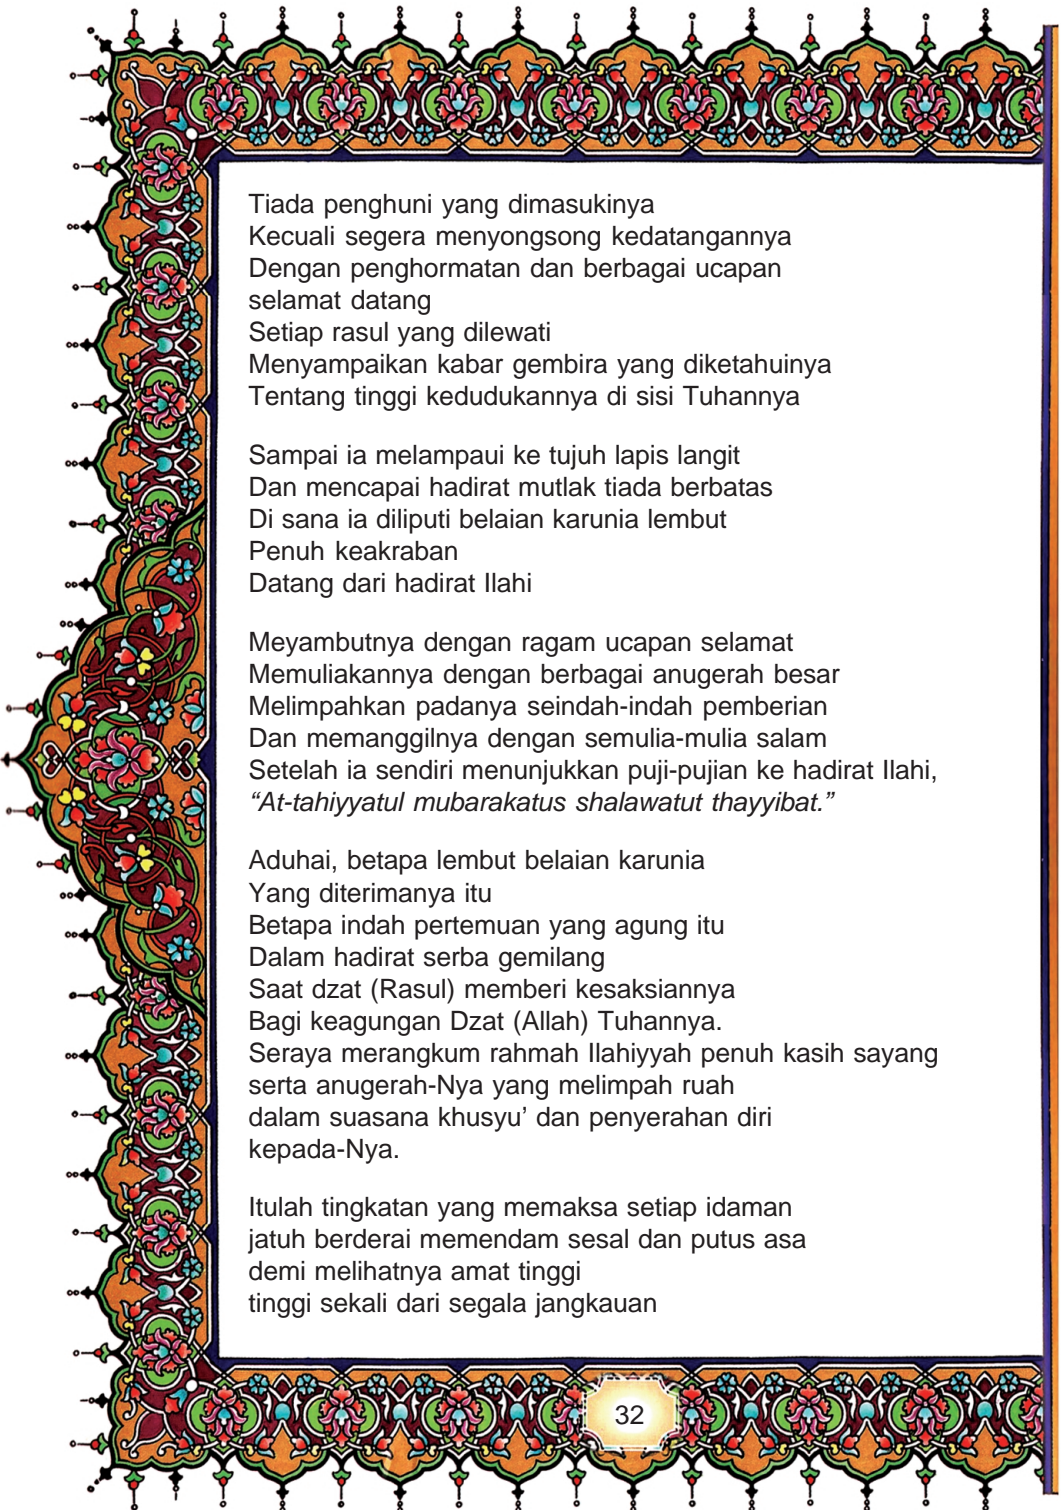 Tiada penghuni yang dimasukinya
Kecuali segera menyongsong kedatangannya
Dengan penghormatan dan berbagai ucapan
selamat datang
Setiap rasul yang dilewati
Menyampaikan kabar gembira yang diketahuinya
Tentang tinggi kedudukannya di sisi Tuhannya
Sampai ia melampaui ke tujuh lapis langit
Dan mencapai hadirat mutlak tiada berbatas
Di sana ia diliputi belaian karunia lembut
Penuh keakraban
Datang dari hadirat Ilahi
Meyambutnya dengan ragam ucapan selamat
Memuliakannya dengan berbagai anugerah besar
Melimpahkan padanya seindah-indah pemberian
Dan memanggilnya dengan semulia-mulia salam
Setelah ia sendiri menunjukkan puji-pujian ke hadirat Ilahi,
“At-tahiyyatul mubarakatus shalawatut thayyibat.”
Aduhai, betapa lembut belaian karunia
Yang diterimanya itu
Betapa indah pertemuan yang agung itu
Dalam hadirat serba gemilang
Saat dzat (Rasul) memberi kesaksiannya
Bagi keagungan Dzat (Allah) Tuhannya.
Seraya merangkum rahmah Ilahiyyah penuh kasih sayang
serta anugerah-Nya yang melimpah ruah
dalam suasana khusyu’ dan penyerahan diri
kepada-Nya.
Itulah tingkatan yang memaksa setiap idaman
jatuh berderai memendam sesal dan putus asa
demi melihatnya amat tinggi
tinggi sekali dari segala jangkauan
32